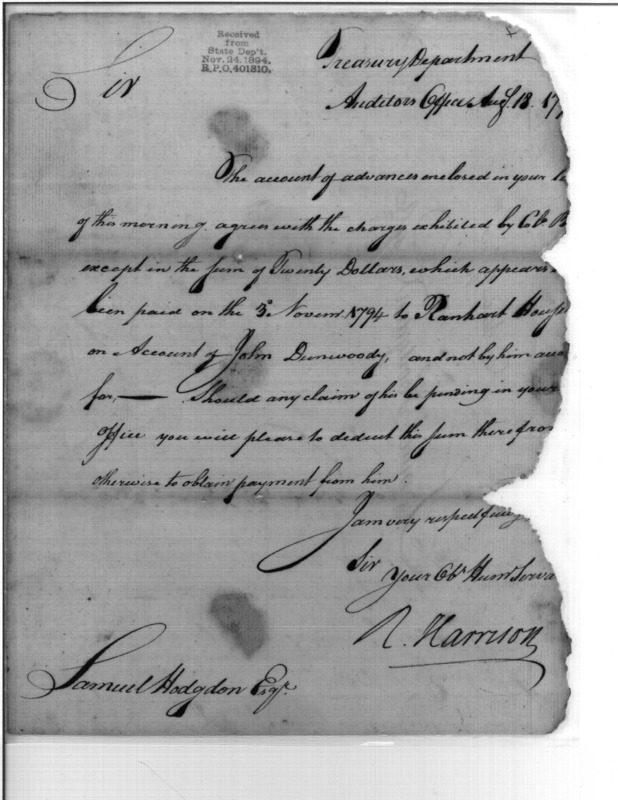 Received
from
State Dep't.
Nov. 24. 1894.
R.P.O. 401810.
Treasury Department
Sir
Auditors Office Augt. 18. 17
The account of advances enclosed in your le
of this morning agrees with the charges exhibited by Colo
except in the sum of Twenty Dollars, which appears
been paid on the 3d Novemr. 1794 to Ranhart
on Account of John Dunwoody, and not by him acco
for, — Should any claim of his be pending in your
Office you will please to deduct this sum therefrom
otherwise to obtain payment from him.
I am very respectfully
Sir
Your Obt. Humb Serva
R. Harrison
Samuel Hodgdon Esqr.